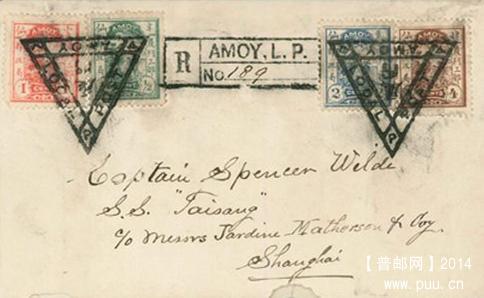 AMOY, L. P.
R
No 189
1
½
2
4
LOCAL POST
AMOY
LOCAL POST
AMOY
Captain Spencer Wilde
S.S. "Taisang"
c/o Messrs Jardine Matherson & Coy.
Shanghai
【普邮网】2014
www.puu.cn